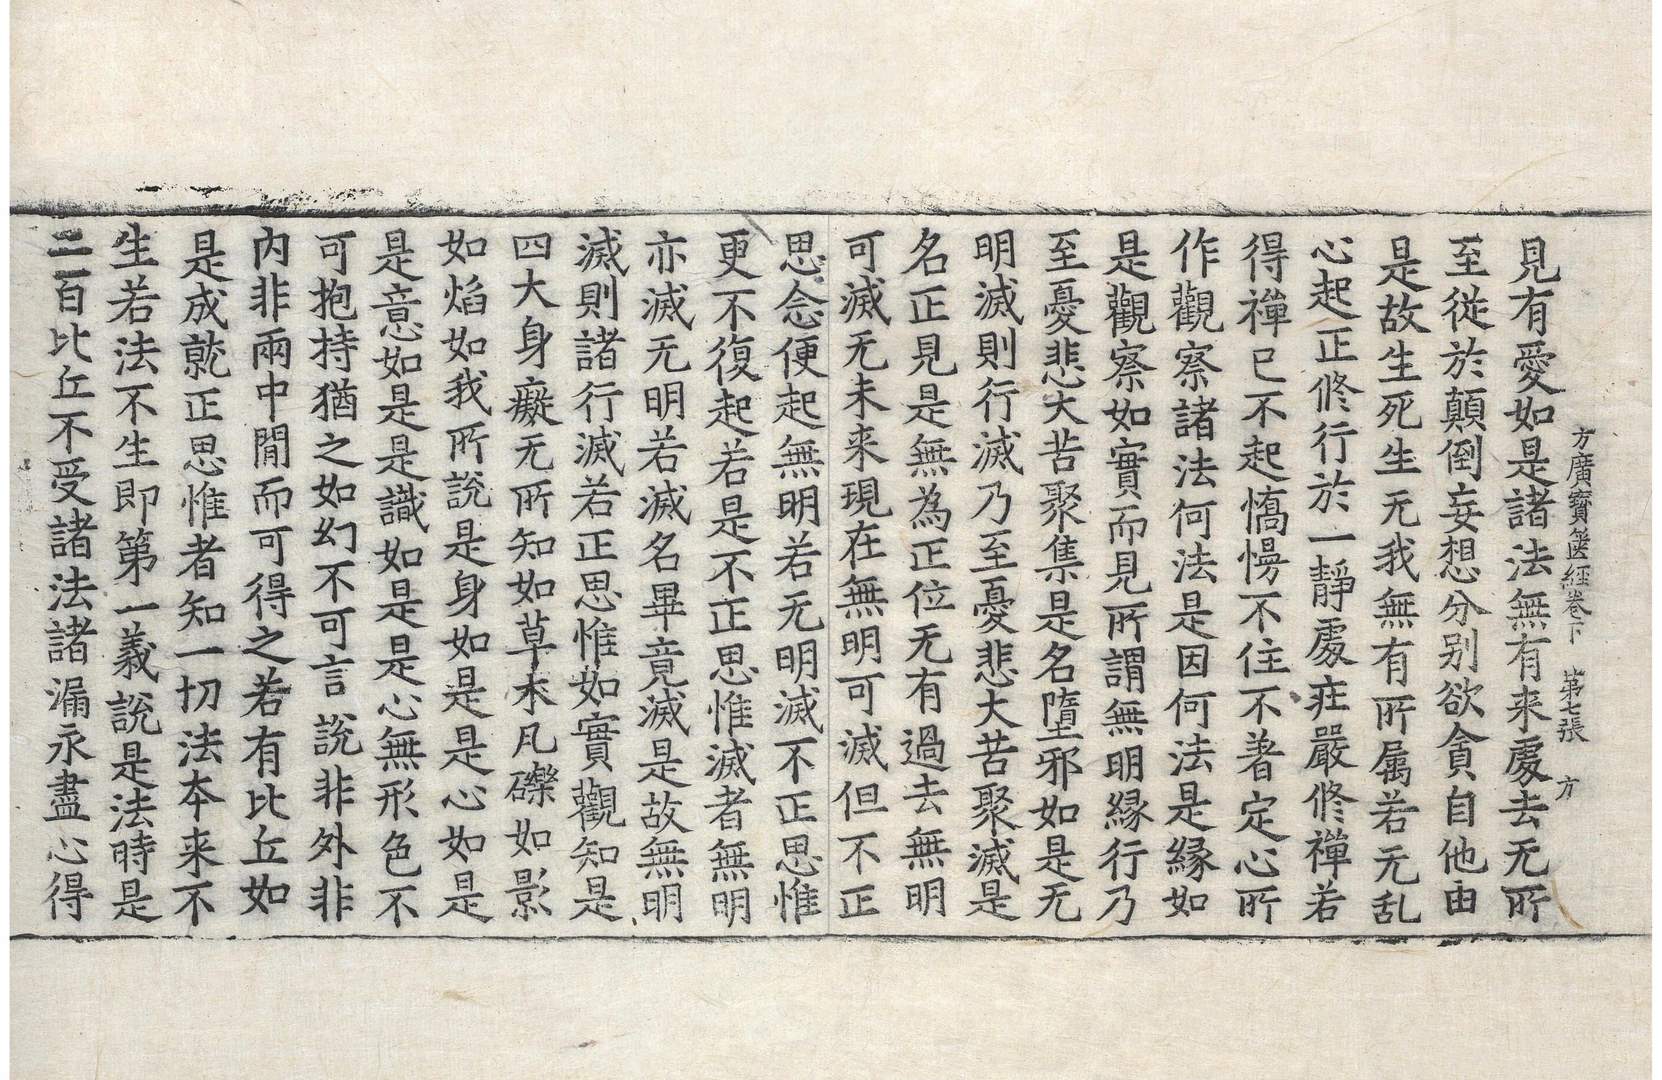 方廣寶篋經卷下　第七張　方
見有愛如是諸法無有来處去无所
至從於顛倒妄想分别欲貪自他由
是故生死生无我無有所属若无乱
心起正修行於一靜處庄嚴修禪若
得禪已不起憍慢不住不著定心所
作觀察諸法何法是因何法是縁如
是觀察如實而見所謂無明縁行乃
至憂悲大苦聚集是名墮邪如是无
明滅則行滅乃至憂悲大苦聚滅是
名正見是無為正位无有過去無明
可滅无未来現在無明可滅但不正
思念便起無明若无明滅不正思惟
更不復起若是不正思惟滅者無明
亦滅无明若滅名畢竟滅是故無明
滅則諸行滅若正思惟如實觀知是
四大身癡无所知如草木凡礫如影
如焰如我所說是身如是是心如是
是意如是是識如是是心無形色不
可抱持猶之如幻不可言說非外非
内非兩中閒而可得之若有比丘如
是成就正思惟者知一切法夲来不
生若法不生即第一義說是法時是
二百比丘不受諸法諸漏永盡心得